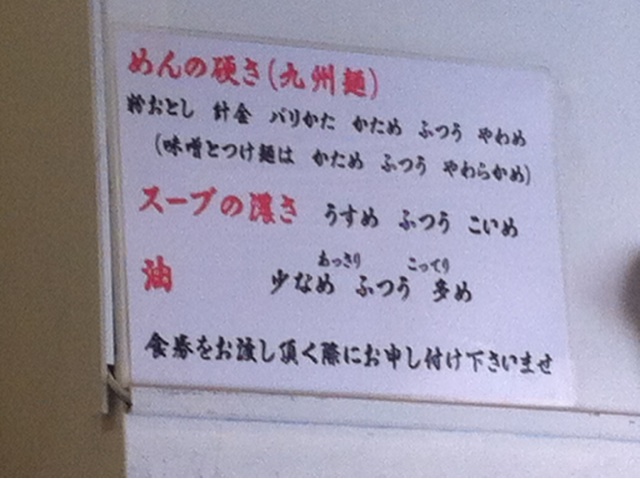 めんの硬さ(九州麺)
粉おとし 針金 バリかた かため ふつう やわめ
(味噌とつけ麺は かため ふつう やわらかめ)
スープの濃さ うすめ ふつう こいめ
あっさり こってり
油 少なめ ふつう 多め
食券をお渡し頂く際にお申し付け下さいませ